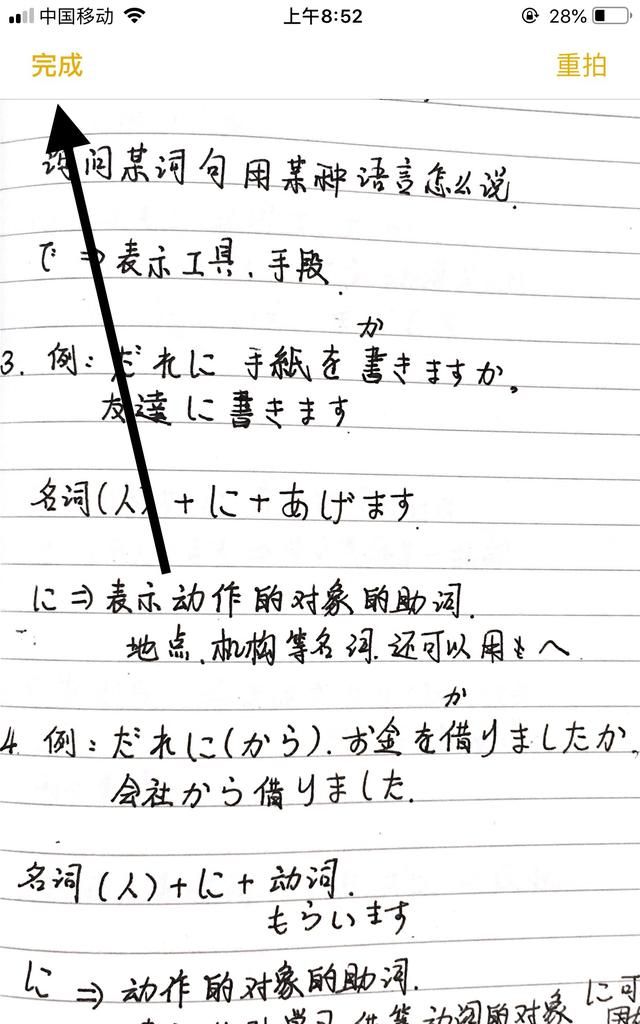 中国移动 上午8:52 28%
完成 重拍
询问某词句用某种语言怎么说.
で ⇒ 表示工具、手段.
か
3. 例: だれに 手紙を書きますか。
友達に書きます
名词(人) + に + あげます
に ⇒ 表示动作的对象的助词.
地点、机构等名词.还可以用 へ
か
4. 例: だれに(から). お金を借りましたか.
会社から借りました.
名词(人) + に + 动词.
もらいます
に ⇒ 动作的对象的助词.
に可
学习 等动词的对象